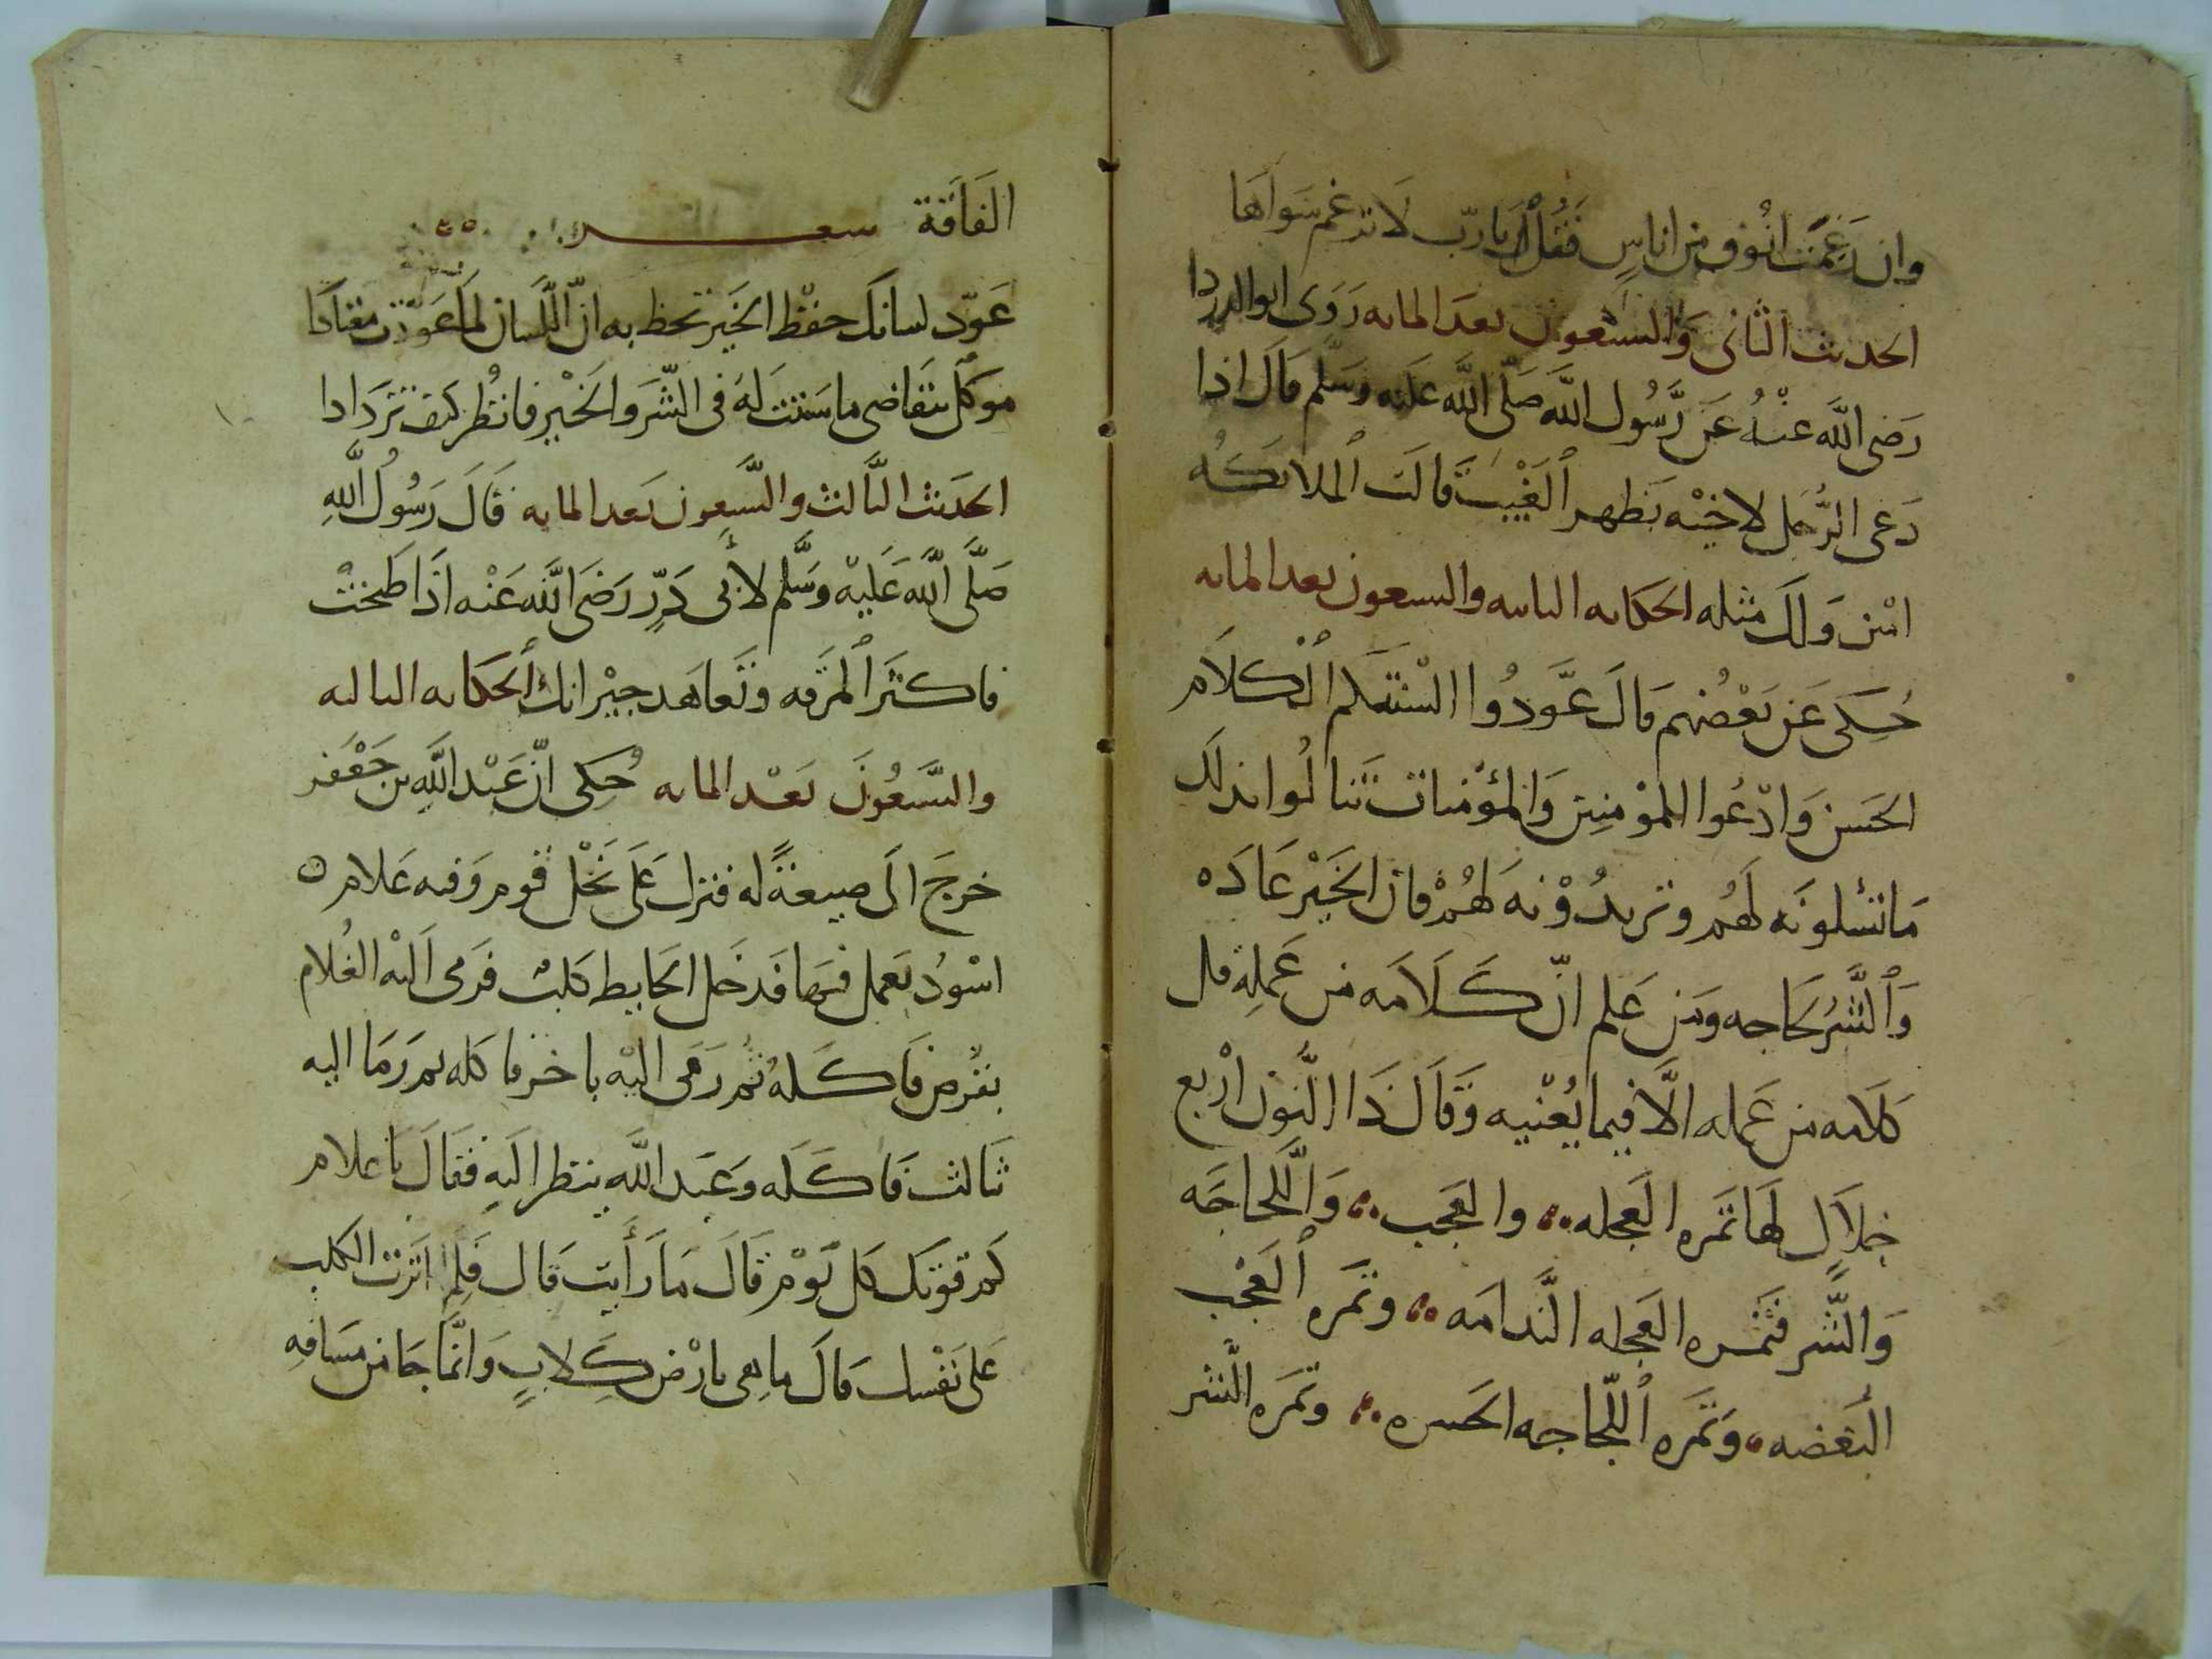 وان رَغِمَت انُوف من اناسٍ فَقُل يا رَبّ لا ترغم سَواهَا
الحديث الثانى وَالسبعون بعدَ المايه رَوَى ابو الدردا
رَضى اللَّه عنْهُ عَن رَّسُول اللَّه صَلّى اللَّه عَليْه وسَلم قالَ اذا
دَعى الرَّجُل لاخيْه بَظهر ٱلغَيْبَة قالَت ٱلملايكَه
امين وَلَك مثله الحكايه الثانيه والسبعون بعد المايه
حُكى عَن بَعْضُهم قالَ عَوَّدُوا السْنَتَكم ٱلكلاَم
الحَسن وَادْعُوا للمُوْمنِين وَالمُؤمنات تَنالُوا بذلك
مَا تسْلونَه لَهُم وتريدُوْنَه لهُمْ فان الخَيْر عَادَه
وَٱلشَّر لحَاجه ومَن عَلم انّ كَلَامَه من عَملِه قل
كلامه من عَمله الاَّ فيما يُعْنيه وَقَالَ ذَا النَّون ارْبع
خلاَلٍ لهَا ثمَره العَجله والعَجب وَاللَّحاجَه
وَالشَّر فثَمره العَجله النَّدامَه وثَمَره ٱلعَجْب
البُغضه وَثَمَره ٱللّجاجه الحَسره وثمَره الشَّر
الفَاقَة شعـــر
عَوّد لسانَك حفْظ الخَيْر تحظ به انّ اللّسان لما عَوّدْت معْتادَا
موَكّل بتَقاضى ما سَننتَ لَهُ فى الشّر وَالخَيْر فانْظُر كيف تَرْدَادا
الحَديث الثَّالث والسَّبعون بَعد المايه قَالَ رَسُولُ اللَّهِ
صَلَّى اللَّه عَليْه وَسَّلم لأبى ذَرٍّ رَضَى اللَّه عَنْه اذَا طَبَخْتْ
فاكثَر ٱلمرَقه وتَعاهَد جيْرانك ٱلحكايه الثالثه
والسَّبعُونَ بَعْد المايه حُكى انّ عَبْد اللَّهِ بن جَعْفر
خرجَ الَى ضيعَةً له فنزل عَلَى نَخْل قوم وَفيه غَلام ٥
اسْودُ يَعمل فيهَا فَدخَل الحَايط كلبٌ فَرمى اَليْه الغُلام
بقُرص فَاكَلهُ ثُم رَمَى اليْه باخر فاكله ثم رَمَا اليه
ثَالث فَاكَلَه وَعَبد اللَّه ينظر الَيهِ فَقالَ يا غلام
كم قوتك كل يَوْم قَالَ مَا رَأَيتَ قَال فَلِم اثرتَ الكَلب
عَلى نَفْسك قالَ ما هى بارْض كِلابٍ وَانَّمَا جَا من مَسَافهِ